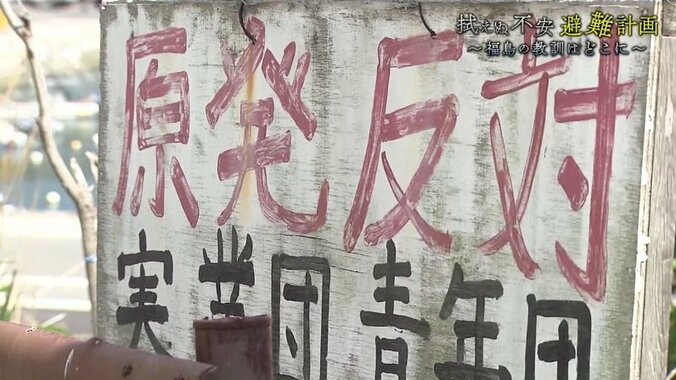 拭えぬ不安 避難計画
～福島の教訓はどこに～
原発反対
実業団青年団